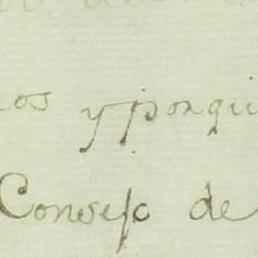 y porqu
Consejo de